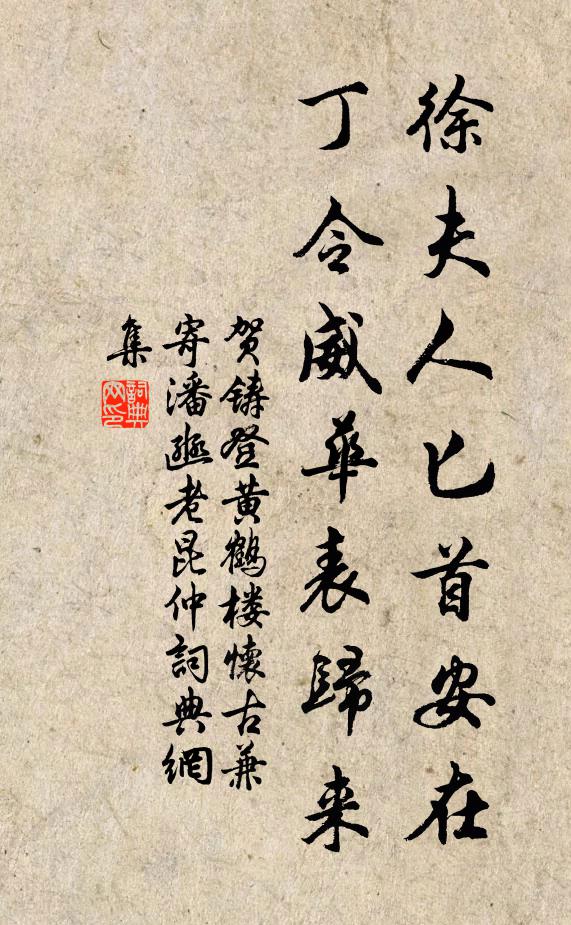 徐夫人匕首安在
丁令威華表歸来
賀鑄登黄鶴楼懷古兼
寄潘邠老昆仲詞典網
集
詞典网印